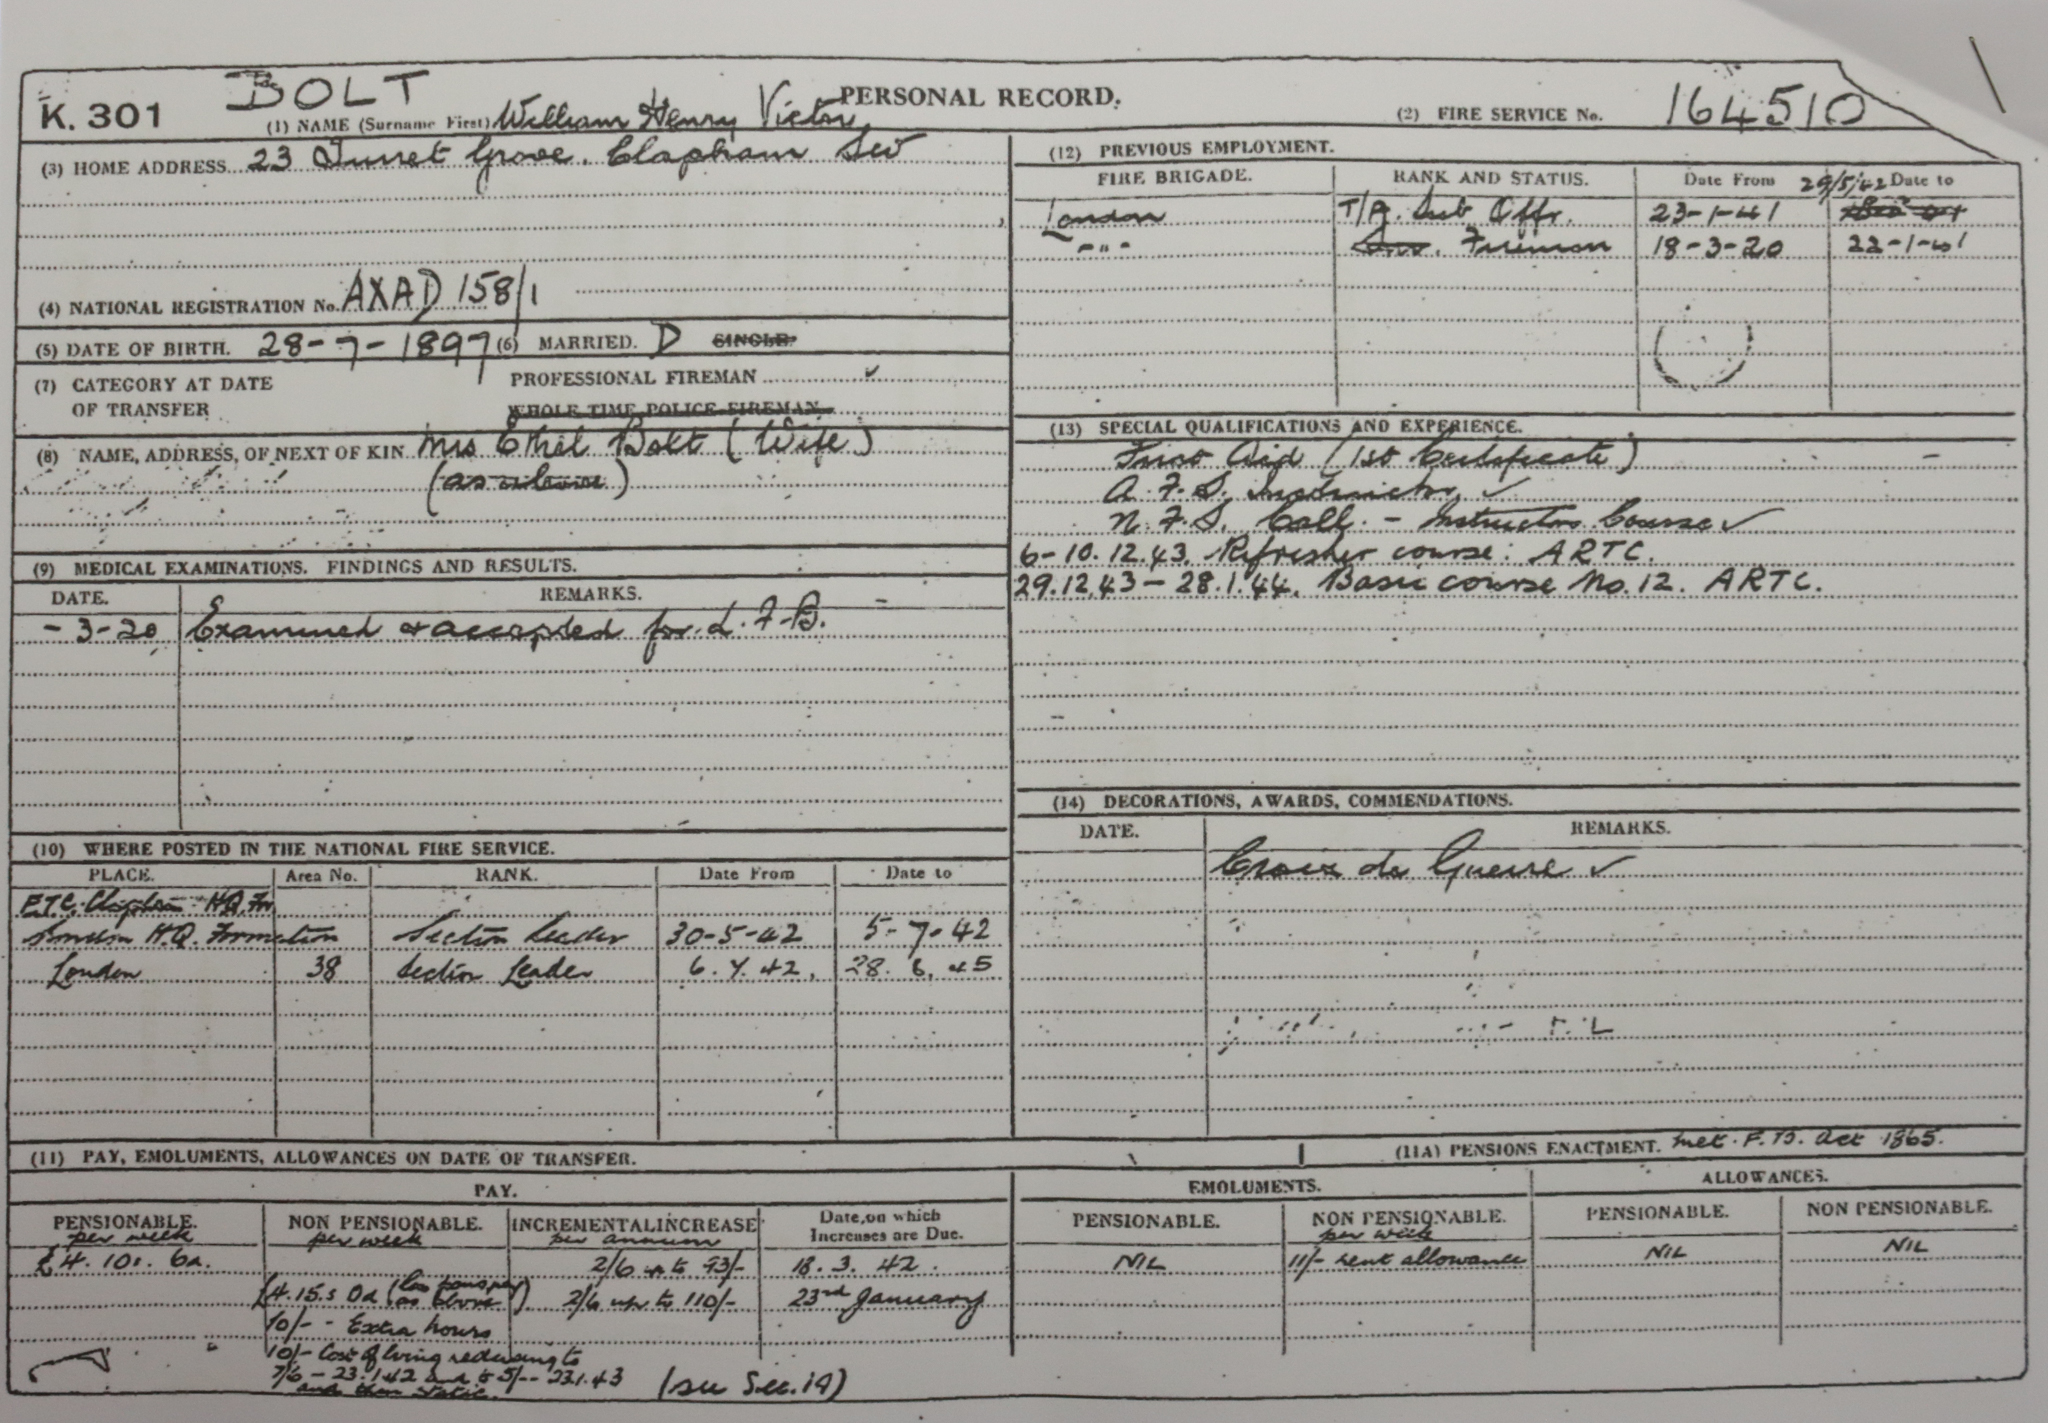 K. 301
BOLT
PERSONAL RECORD.
(1) NAME (Surname First) William Henry Victor
(2) FIRE SERVICE No. 164510
(3) HOME ADDRESS 23 Turret Grove. Clapham SW
(4) NATIONAL REGISTRATION No. AXAD 158/1
(5) DATE OF BIRTH. 28-7-1897 (6) MARRIED. D SINGLE.
(7) CATEGORY AT DATE OF TRANSFER
PROFESSIONAL FIREMAN ✓
WHOLE TIME POLICE FIREMAN
(8) NAME, ADDRESS, OF NEXT OF KIN Mrs Ethel Bolt (Wife)
(as above)
(9) MEDICAL EXAMINATIONS. FINDINGS AND RESULTS.
DATE. REMARKS.
- 3-20 Examined & accepted for L.F.B.
(10) WHERE POSTED IN THE NATIONAL FIRE SERVICE.
PLACE. Area No. RANK. Date From Date to
F.T.C. Clapham HQ For
London H.Q. Formation Section Leader 30-5-42 5-7-42
London 38 Section Leader 6.7.42. 28.6.45
(12) PREVIOUS EMPLOYMENT.
FIRE BRIGADE. RANK AND STATUS. Date From Date to
29/5/42
London T/A. Sub Offr. 23-1-41
-"- Fireman 18-3-20 22-1-41
(13) SPECIAL QUALIFICATIONS AND EXPERIENCE.
First Aid (1st Certificate)
A.F.S. Instructor ✓
N.F.S. Coll. - Instructors Course ✓
6-10.12.43. Refresher course: ARTC.
29.12.43 - 28.1.44. Basic course No. 12. ARTC.
(14) DECORATIONS, AWARDS, COMMENDATIONS.
DATE. REMARKS.
Croix de Guerre ✓
(11) PAY, EMOLUMENTS, ALLOWANCES ON DATE OF TRANSFER.
(11A) PENSIONS ENACTMENT. Met. F.B. Act 1865.
PAY. EMOLUMENTS. ALLOWANCES.
PENSIONABLE. per week
NON PENSIONABLE. per week
INCREMENTAL INCREASE per annum
Date on which Increases are Due.
PENSIONABLE.
NON PENSIONABLE. per week
PENSIONABLE.
NON PENSIONABLE.
£4. 10s. 6d. 2/6 up to 93/- 18. 3. 42. NIL 11/- rent allowance NIL NIL
£4.15.s 0d (less pens pay as above) 2/6 up to 110/- 23rd January
10/- - Extra hours
10/- Cost of living reducing to
7/6 - 23.1.42 and to 5/- - 23.1.43
and then static.
(see Sec. 19)